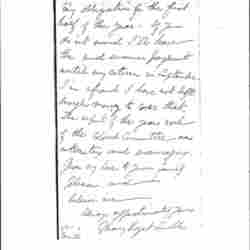 my obligation for the first
half of this year. If you
do not mind I'll leave
the mid summer payment
until my return in September.
I'm afraid I have not left
enough money to cover that.
The report of the years work
of the Committee,
interesting and encouraging.
love to your
believe me
Always affectionately yours
Mary